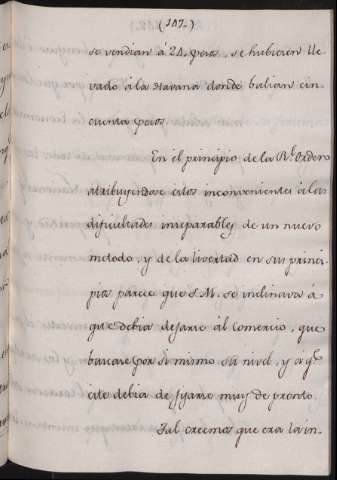 (147.)
se vendian á 24. pesos, se hubieran lle-
vado á la Havana donde balian cin-
cuenta pesos
En el principio de la Rl. Orden
atribuyendose estos inconvenientes á las
dificultades inseparables de un nuevo
metodo, y de la livertad en sus princi-
pios parece que S.M. se inclinava á
que debia dejarse al Comercio, que
buscase por si mismo su nivel, y q.e
este debia de fijarse muy de pronto.
Tal creemos que era la in-